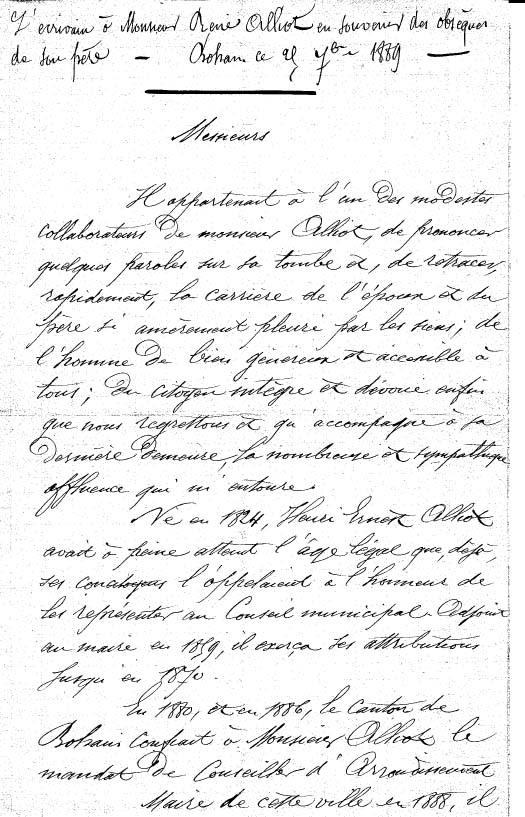 L'écrivain à Monsieur René Alliot en souvenir des obsèques
de son père — Bohain ce 25 7bre 1889 —
Messieurs
Il appartenait à l'un des modestes
collaborateurs de monsieur Alliot, de prononcer
quelques paroles sur sa tombe et, de retracer,
rapidement, la carrière de l'époux et du
père si amèrement pleuré par les siens; de
l'homme de bien généreux et accessible à
tous; du citoyen intègre et dévoué enfin
que nous regrettons et qu'accompagne à sa
dernière demeure la nombreuse et sympathique
affluence qui m'entoure.
Né en 1824, Henri Ernest Alliot
avait à peine atteint l'âge légal que, déjà,
ses concitoyens l'appelaient à l'honneur de
les représenter au Conseil municipal. Adjoint
au maire en 1859, il exerça ses attributions
jusqu'en 1870.
En 1880, et en 1886, le canton de
Bohain confiait à Monsieur Alliot le
mandat de Conseiller d'Arrondissement
Maire de cette ville en 1888, il